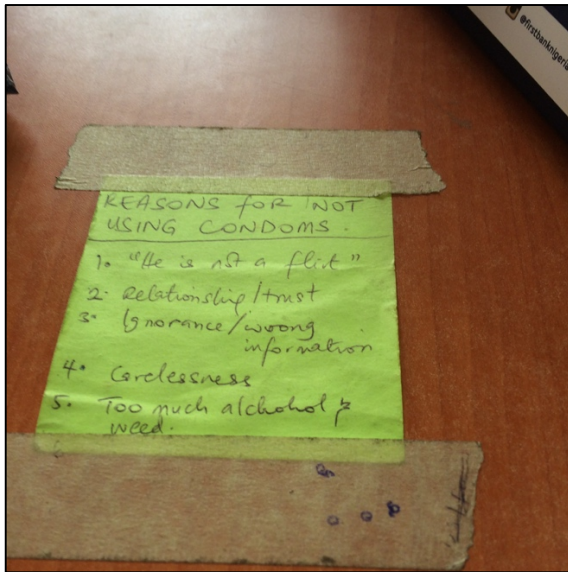 @firstbanknigeria
REASONS FOR NOT
USING CONDOMS.
1. "He is not a flirt"
2. Relationship/trust
3. Ignorance/wrong
information
4. Carelessness
5. Too much alchohol &
weed.